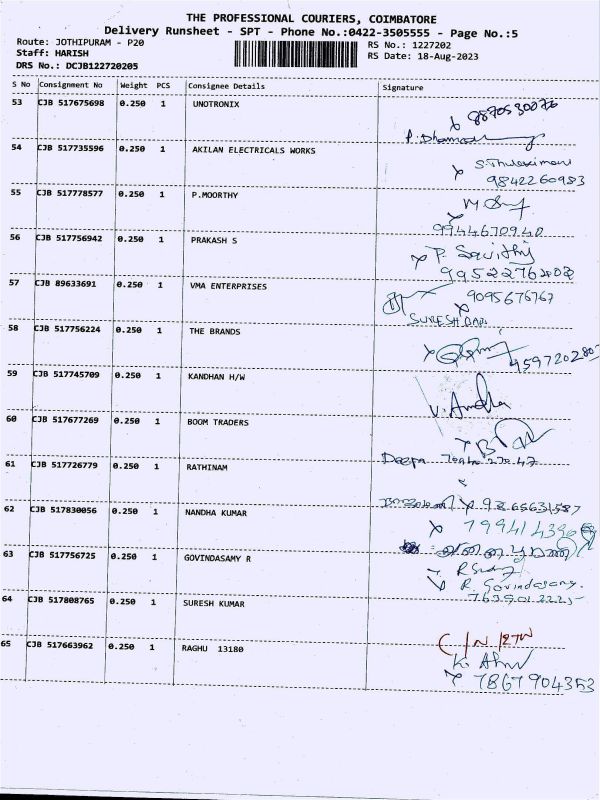 THE PROFESSIONAL COURIERS, COIMBATORE
Delivery Runsheet - SPT - Phone No.:0422-3505555 - Page No.:5
Route: JOTHIPURAM - P20
RS No.: 1227202
Staff: HARISH
RS Date: 18-Aug-2023
DRS No.: DCJB122720205
S No Consignment No Weight PCS Consignee Details Signature
53 CJB 517675698 0.250 1 UNOTRONIX
54 CJB 517735596 0.250 1 AKILAN ELECTRICALS WORKS
9842260983
55 CJB 517778577 0.250 1 P.MOORTHY
9944670940
56 CJB 517756942 0.250 1 PRAKASH S
P. Savithy
9952276202
57 CJB 89633691 0.250 1 VMA ENTERPRISES
9095676767
58 CJB 517756224 0.250 1 THE BRANDS
59 CJB 517745709 0.250 1 KANDHAN H/W
60 CJB 517677269 0.250 1 BOOM TRADERS
61 CJB 517726779 0.250 1 RATHINAM
Deepa
62 CJB 517830056 0.250 1 NANDHA KUMAR
9865631587
63 CJB 517756725 0.250 1 GOVINDASAMY R
R. Govindasamy.
64 CJB 517808765 0.250 1 SURESH KUMAR
65 CJB 517663962 0.250 1 RAGHU 13180
7867904353